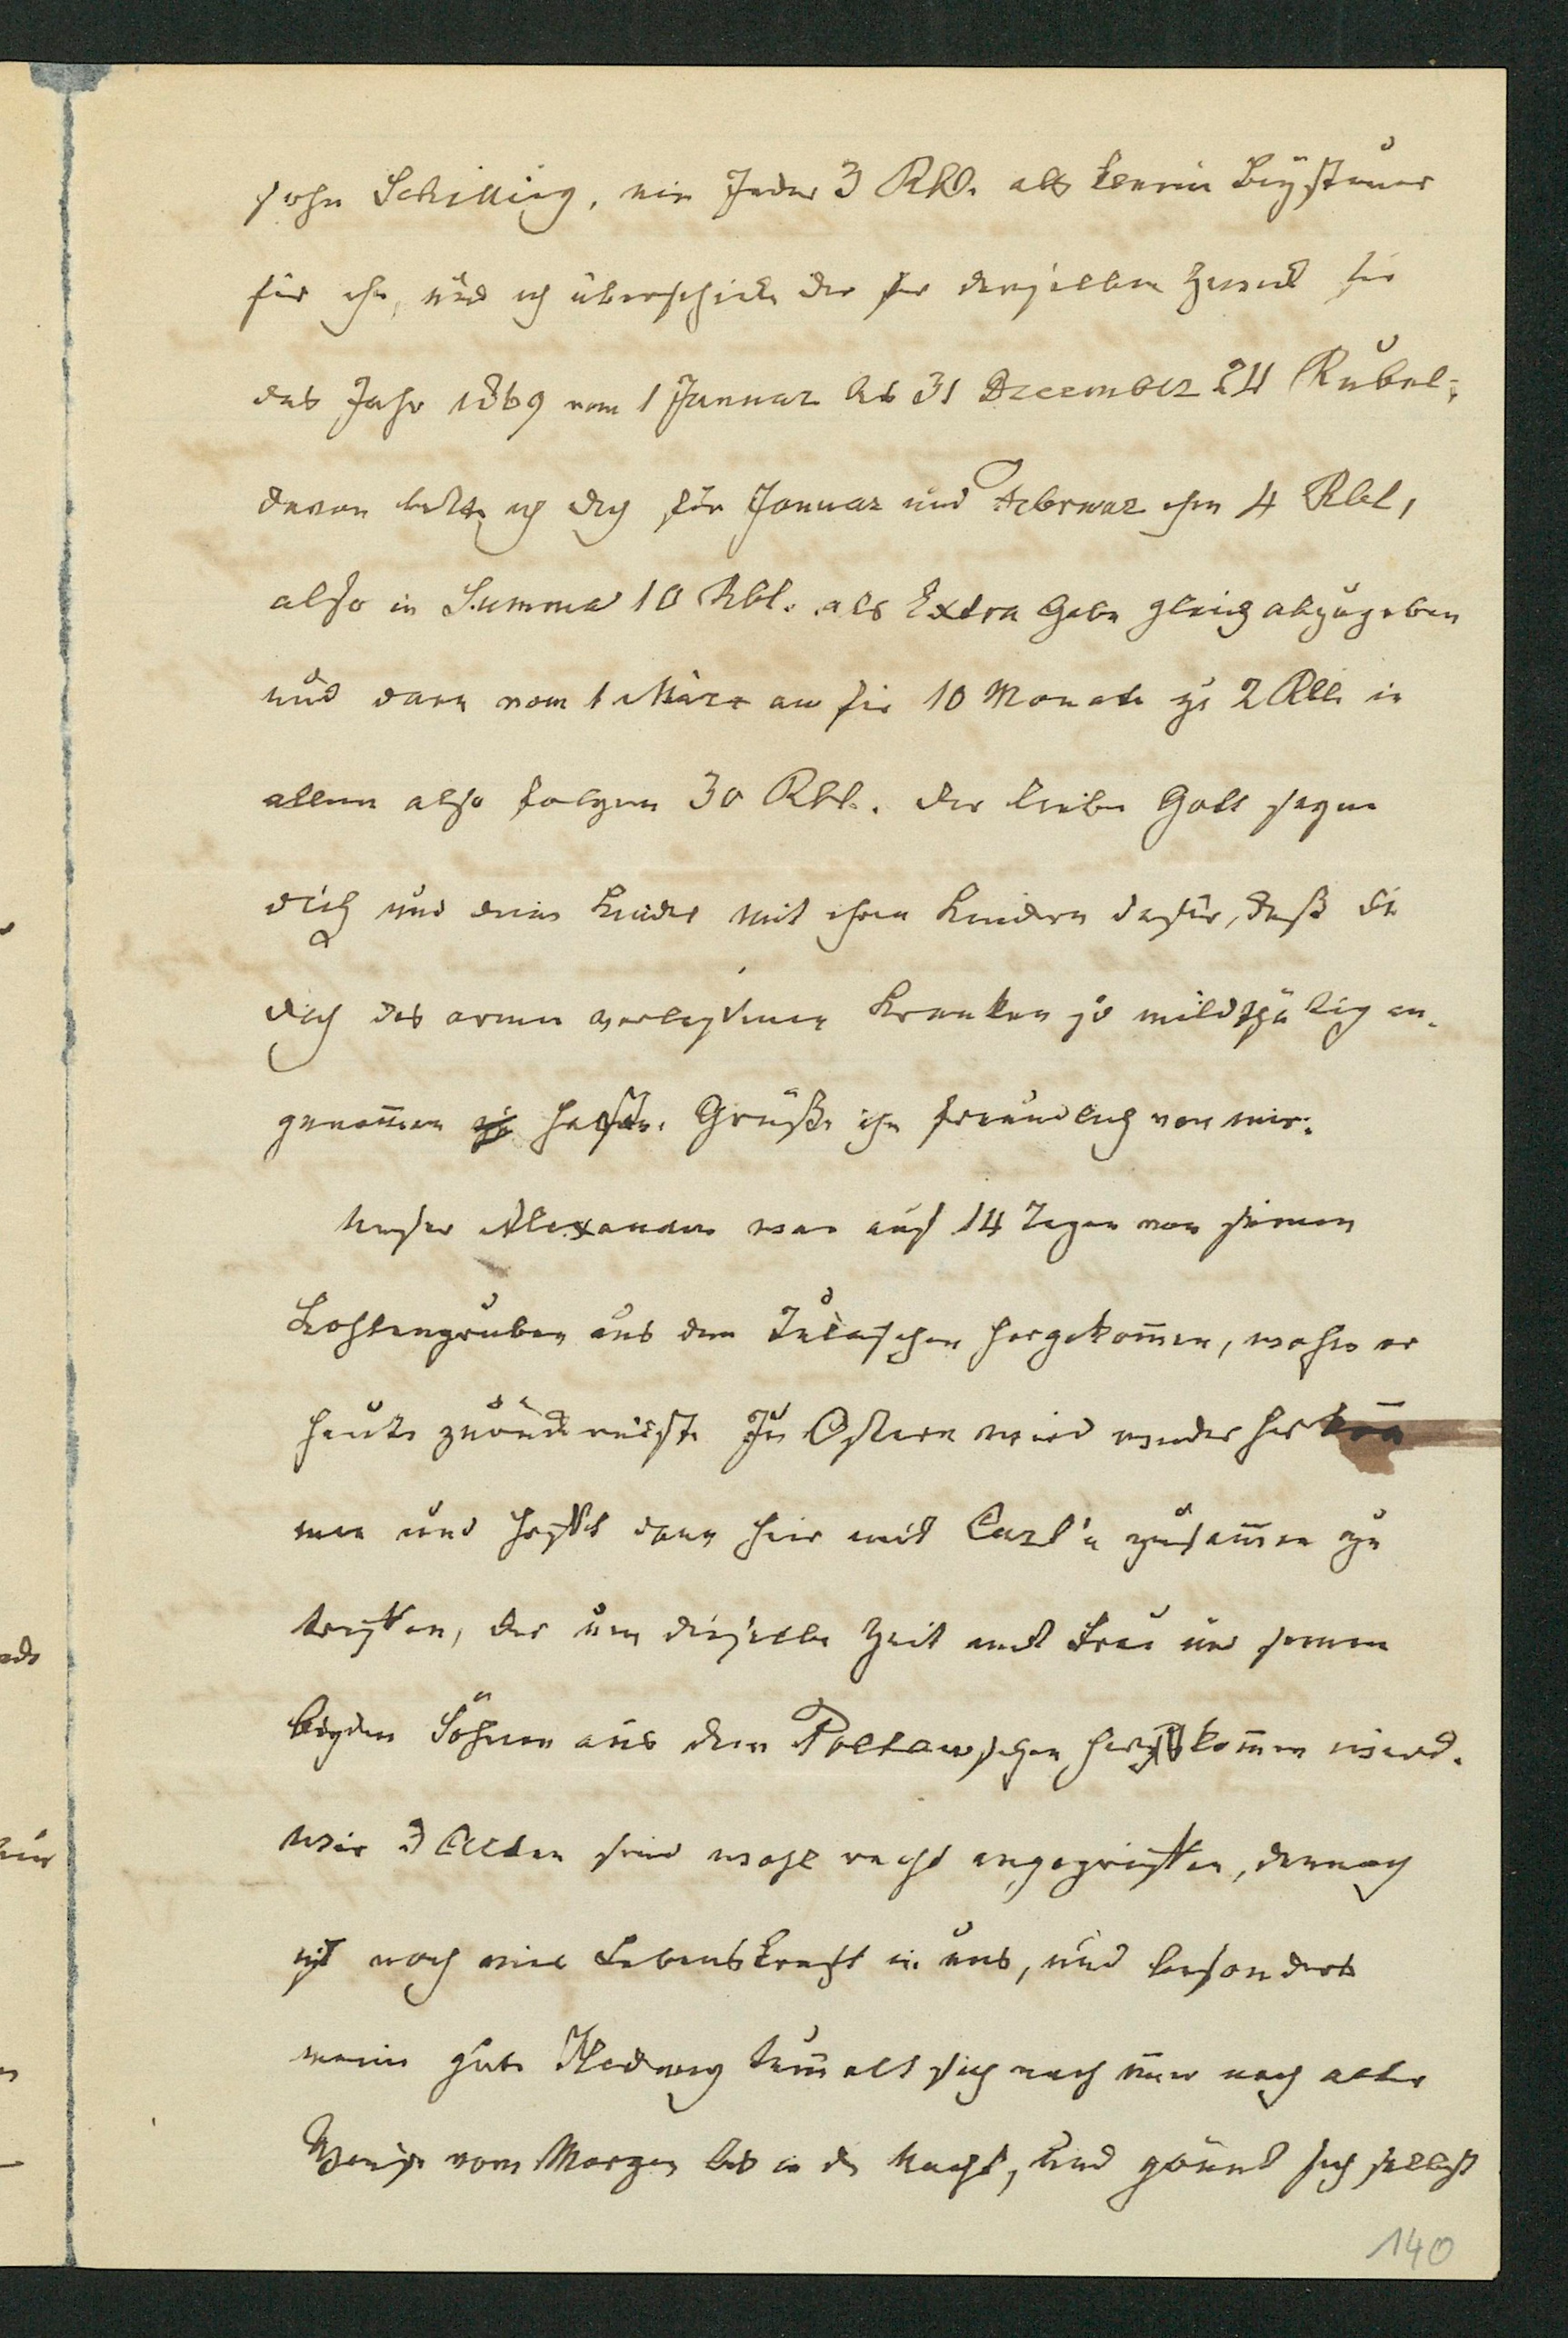 sohn Schilling, ein Jeder 3 Rbl. als kleine Beysteuer
für ihn, und ich überschicke dir für denselben Zweck für
das Jahr 1869 vom 1 Januar bis 31 December 24 Rubel;
davon bitte ich dich für Januar und Februar ihm 4 Rbl,
also in Summa 10 Rbl. als Extra Gabe gleich abzugeben
und dann vom 1 März an für 10 Monate zu 2 Rbl. in
allem also folgen 30 Rbl. Der liebe Gott segne
dich und deine Kinder mit ihren Kindern dafür, daß du
dich des armen verlassenen Kranken so mildthätig an-
genom̄en hast. Grüße ihn freundlich von mir.
Unser Alexander war auf 14 Tagen von seinen
Kohlengruben aus dem Tulaschen hergekom̄en, wohin er
heute zurück reiste. Zu Ostern wird wieder herkom̄
men und hofft dann hier mit Carl'n zusam̄en zu
treffen, der um dieselbe Zeit mit Frau und seinen
beyden Söhnen aus dem Poltawschen her kom̄en wird.
Wir 2 Alten sind wohl recht angegriffen, dennoch
ist noch viel Lebenskraft in uns, und besonders
meine gute Hedwig tum̄elt sich nach wie nach alter
Weise vom Morgen bis in die Nacht, und gönnt sich selbst
140